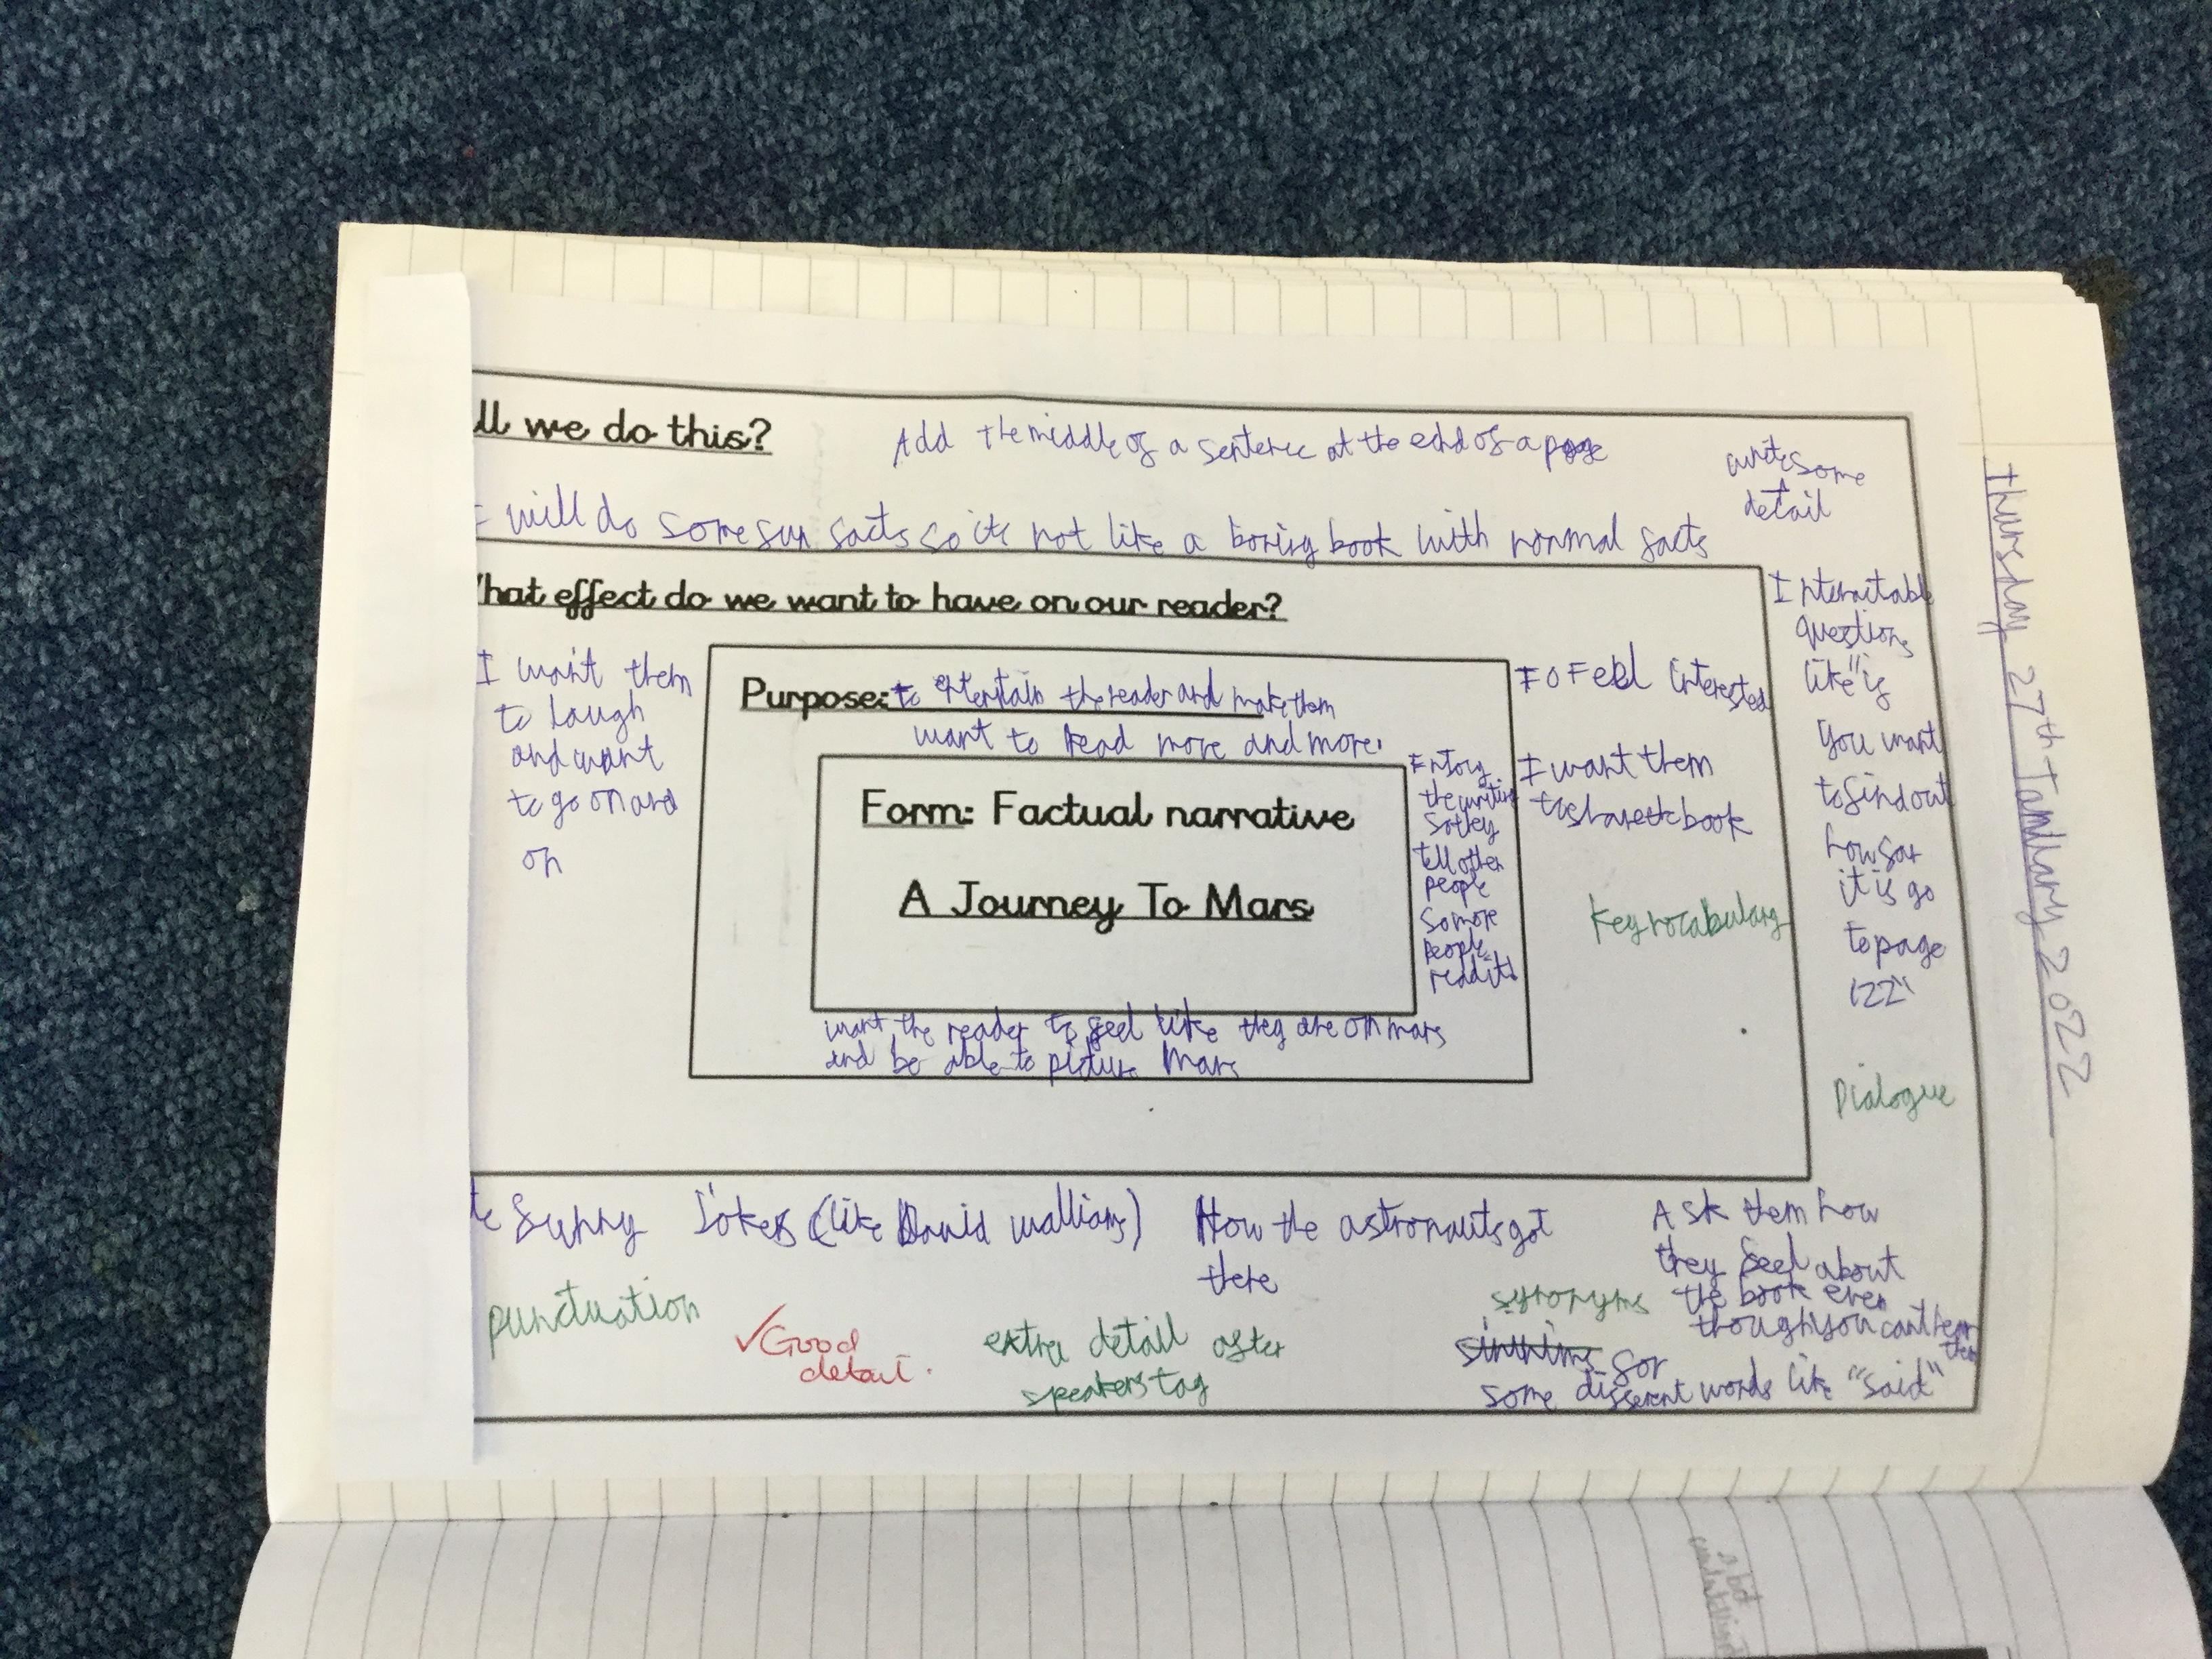 ll we do this?
Add the middle of a sentence at the end of a page
some
detail
I will do some fun facts so its not like a boring book with normal facts
hat effect do we want to have on our reader?
I want them
to laugh
and want
to go on and
on
Purpose: to entertain the reader and make them
want to read more and more.
Form: Factual narrative
A Journey To Mars
the writing
so they
tell other
people
so more
people
read it!
want the reader to feel like they are on mars
and be able to picture Mars
to Feel interested
I want them
to share the book
key vocabulary
questions
like "if
you want
to find out
how far
it is go
to page
122"
Dialogue
funny Jokes (like David walliams)
How the astronauts got
there
Ask them how
they feel about
the book even
though you cant hear
them
punctuation
✓Good
detail.
extra detail after
speakers tag
synonyms
for
some different words like "said"
Thursday 27th January 2022